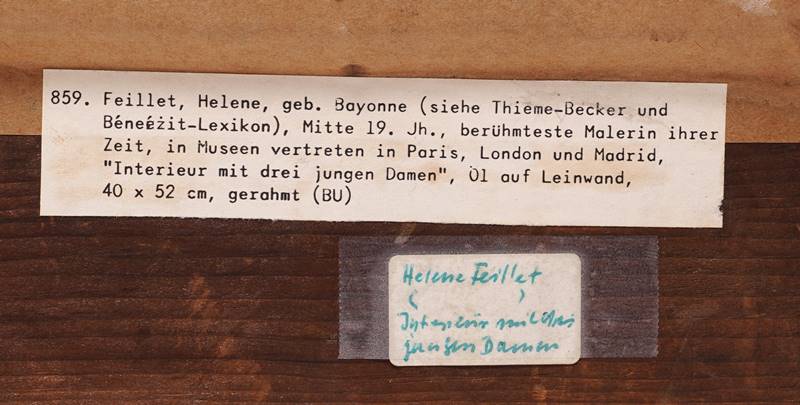 859. Feillet, Helene, geb. Bayonne (siehe Thieme-Becker und
Béneézit-Lexikon), Mitte 19. Jh., berühmteste Malerin ihrer
Zeit, in Museen vertreten in Paris, London und Madrid,
"Interieur mit drei jungen Damen", Öl auf Leinwand,
40 x 52 cm, gerahmt (BU)
Helene Feillet
( )
Interieur mit drei
jungen Damen